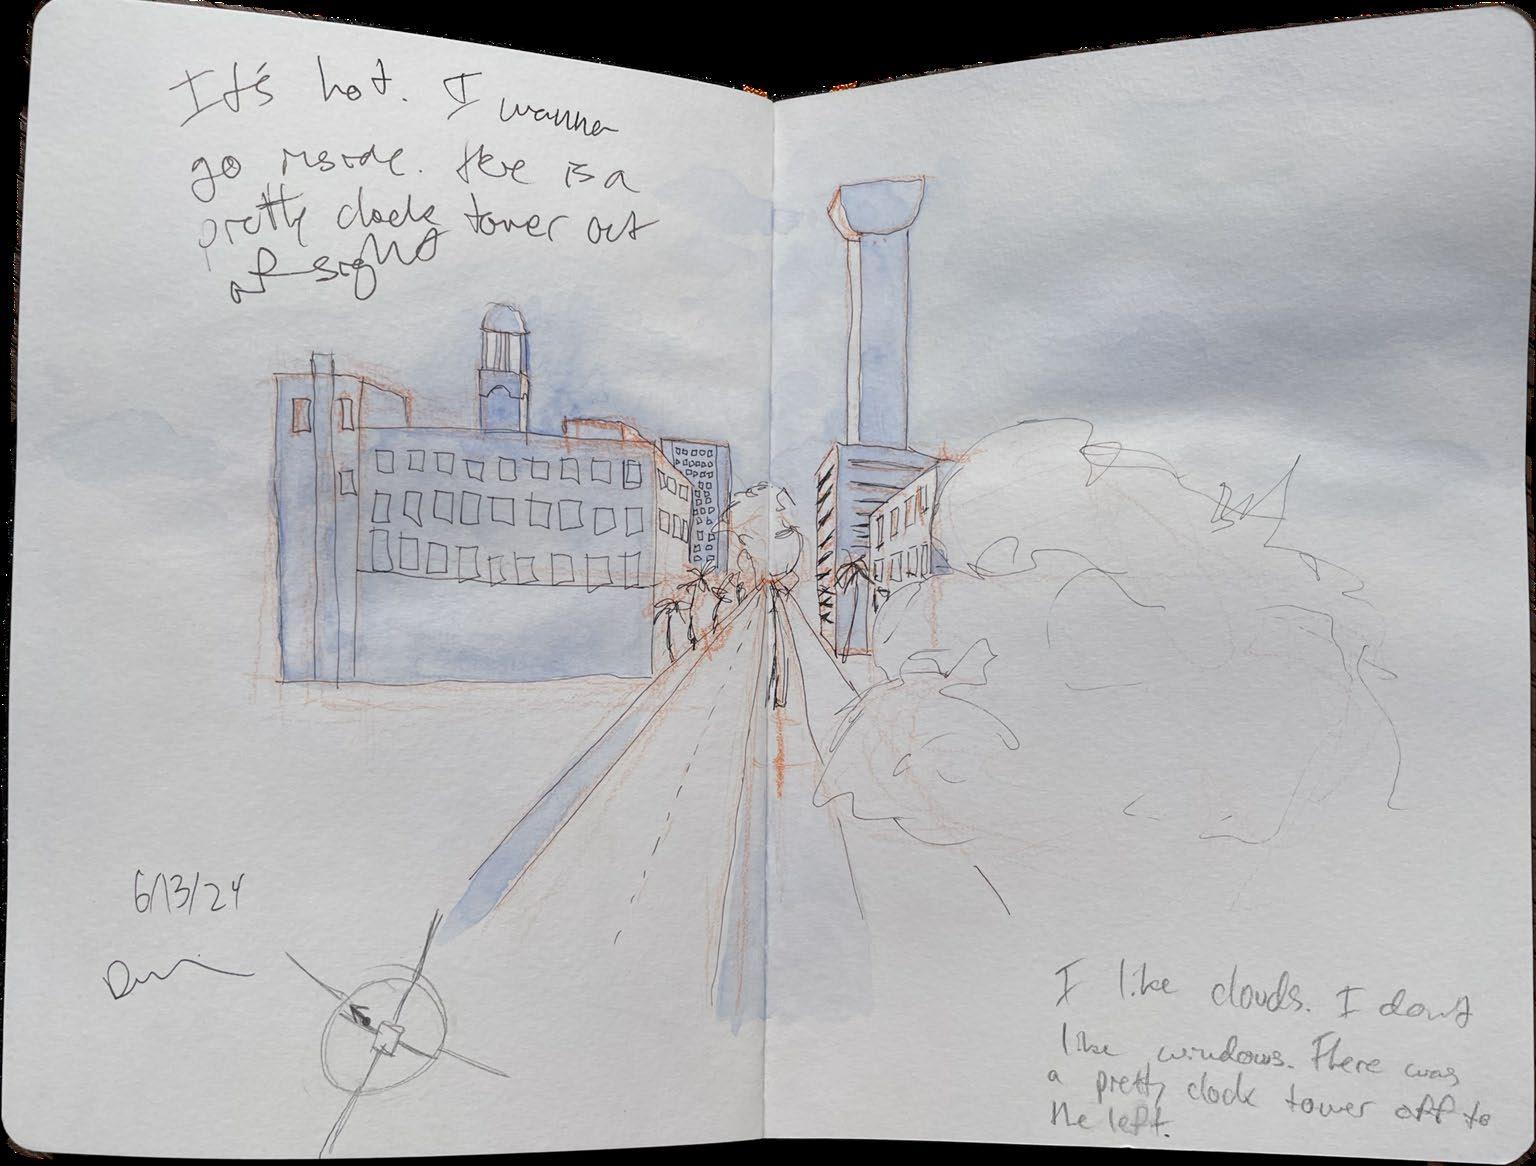 It's hot. I wanna
go inside. there is a
pretty clock tower out
of sight
6/13/24
I like clouds. I dont
like windows. There was
a pretty clock tower off to
the left.